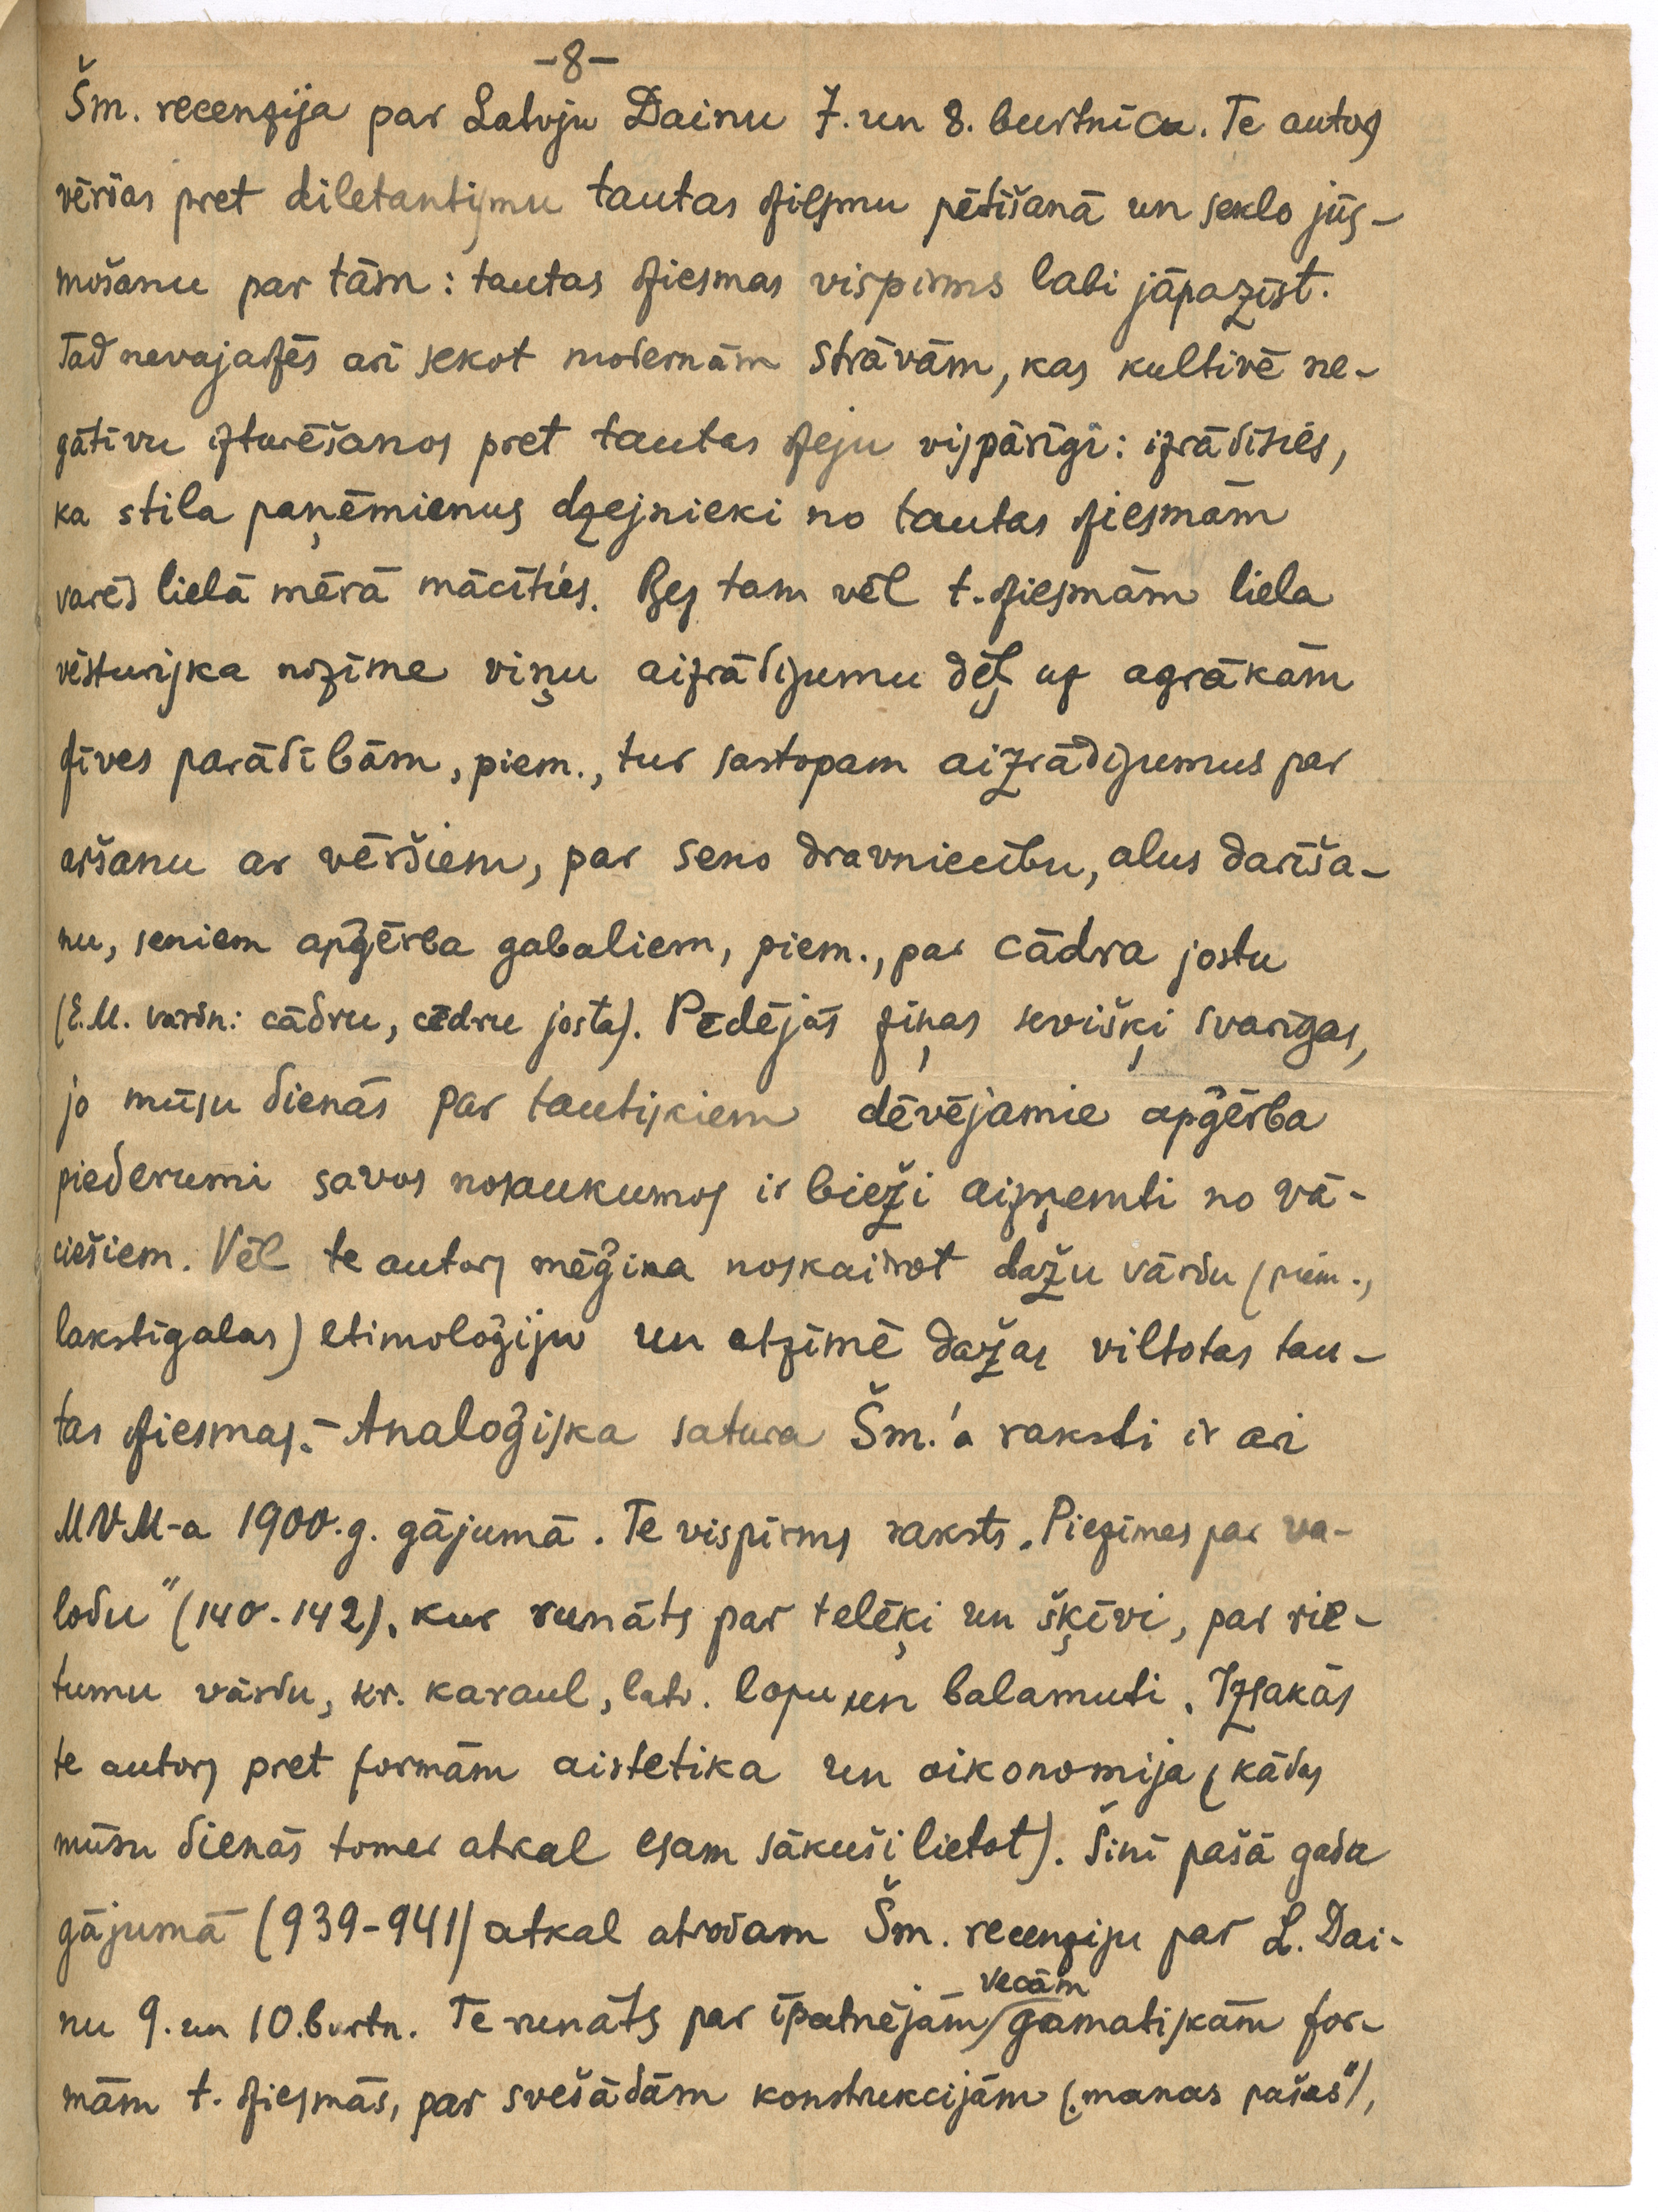 -8-
Šm. recenzija par Latvju Dainu 7. un 8. burtnīcu. Te autors
vēršas pret diletantismu tautas dziesmu pētīšanā un seklo jūs-
mošanu par tām: tautas dziesmas vispirms labi jāpazīst.
Tad nevajadzēs arī sekot modernām strāvām, kas kultivē ne-
gātīvu izturēšanos pret tautas dzeju vispārīgi: izrādīsies,
ka stila paņēmienus dzejnieki no tautas dziesmām
varēs lielā mērā mācīties. Bez tam vēl t. dziesmām liela
vēsturiska nozīme viņu aizrādījumu dēļ uz agrākām
dzīves parādībām, piem., tur sastopam aizrādījumus par
aršanu ar vēršiem, par seno dravniecību, alus darīša-
nu, seniem apģērba gabaliem, piem., par cādra jostu
(E.M. vārdn: cādru, cēdru josta). Pēdējās ziņas sevišķi svarīgas,
jo mūsu dienās par tautiskiem dēvējamie apģērba
piederumi savos nosaukumos ir bieži aizņemti no vā-
ciešiem. Vēl te autors mēģina noskaidrot dažu vārdu (piem.,
lakstīgalas) etimoloģiju un atzīmē dažas viltotas tau-
tas dziesmas. - Analoģiska satura Šm.'a raksti ir arī
MVM-a 1900. g. gājumā. Te vispirms raksts „Piezīmes par va-
lodu" (140-142), kur runāts par telēķi un šķēvi, par rie-
tumu vārdu, kr. karaul, latv. lopu un balamuti. Izsakās
te autors pret formām aistetika un oikonomija (kādas
mūsu dienās tomēr atkal esam sākuši lietot). Šinī pašā gada
gājumā (939-941) atkal atrodam Šm. recenziju par L. Dai-
nu 9. un 10. burtn. Te runāts par īpatnējām vecām gamatiskām for-
mām t. dziesmās, par svešādām konstrukcijām („manas pašas"),